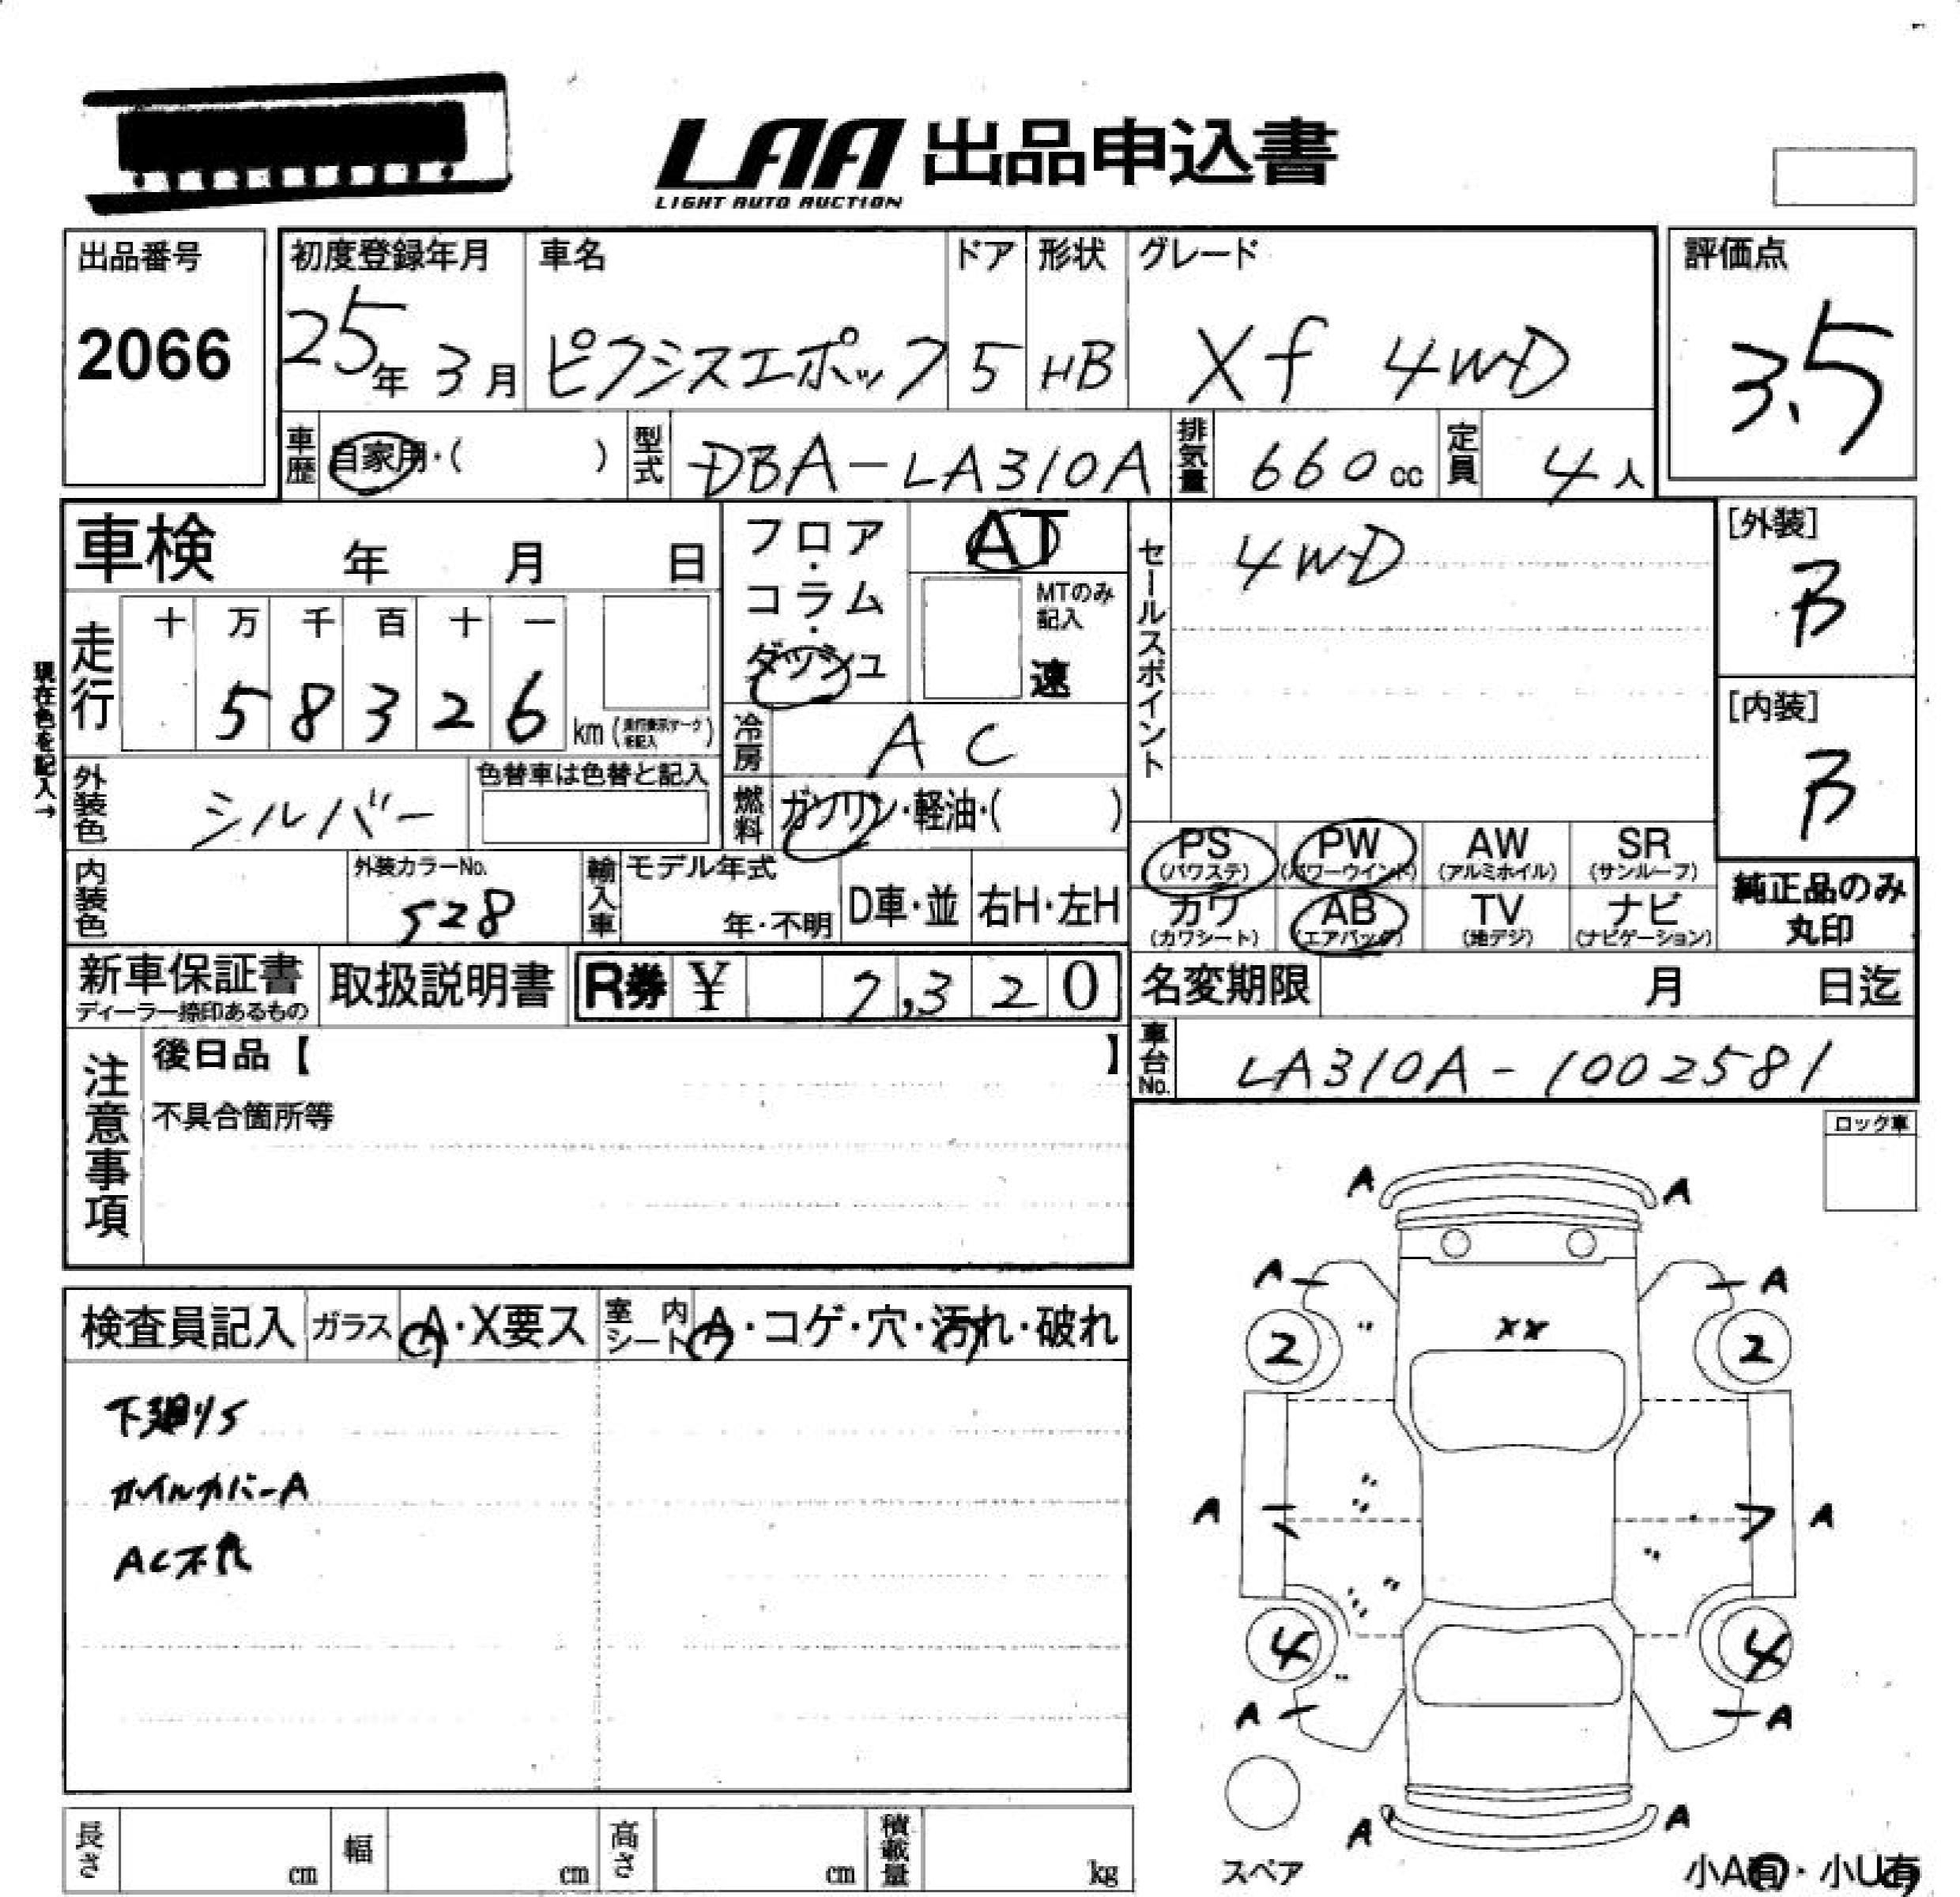 LAA 出品申込書
LIGHT AUTO AUCTION
出品番号
2066
初度登録年月
25年 3月
車名
ピクシスエポック
ドア
5
形状
HB
グレード
Xf 4WD
評価点
3.5
車歴 自家用・( )
型式 DBA-LA310A
排気量 660cc
定員 4人
車検 年 月 日
フロア・コラム・ダッシュ
AT
MTのみ記入
速
セールスポイント
4WD
[外装]
B
[内装]
B
現在色を記入→
走行
十 万 千 百 十 一
5 8 3 2 6 km
冷房 AC
外装色 シルバー
色替車は色替と記入
燃料 ガソリン・軽油・( )
内装色
外装カラーNo.
528
輸入車
モデル年式
年・不明
D車・並
右H・左H
PS (パワステ)
PW (パワーウインド)
AW (アルミホイル)
SR (サンルーフ)
カワ (カワシート)
AB (エアバッグ)
TV (地デジ)
ナビ (ナビゲーション)
純正品のみ
丸印
新車保証書
ディーラー捺印あるもの
取扱説明書
R券 ¥ 7,320
名変期限 月 日迄
車台No. LA310A-1002581
注意事項
後日品【 】
不具合箇所等
ロック車
検査員記入
ガラス A・X要ス
室内シート A・コゲ・穴・汚れ・破れ
下廻りS
ホイルカバーA
AC不良
A A
A A
2 XX 2
A A
4 4
A A
A A
スペア
長さ cm
幅 cm
高さ cm
積載量 kg
小A有・小U有